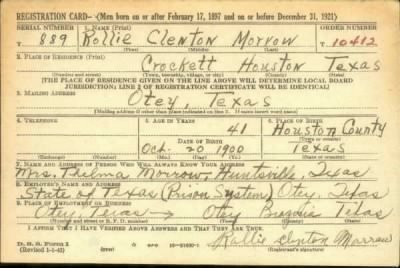 REGISTRATION CARD—(Men born on or after February 17, 1897 and on or before December 31, 1921)
SERIAL NUMBER 1. NAME (Print) ORDER NUMBER
T 889 Rollie Clenton Morrow T 10412
(First) (Middle) (Last)
2. PLACE OF RESIDENCE (Print)
Crockett Houston Texas
(Number and street) (Town, township, village, or city) (County) (State)
[THE PLACE OF RESIDENCE GIVEN ON THE LINE ABOVE WILL DETERMINE LOCAL BOARD
JURISDICTION; LINE 2 OF REGISTRATION CERTIFICATE WILL BE IDENTICAL]
3. MAILING ADDRESS
Otey, Texas
[Mailing address if other than place indicated on line 2. If same insert word same]
4. TELEPHONE 5. AGE IN YEARS 6. PLACE OF BIRTH
41 Houston County
DATE OF BIRTH (Town or county)
Oct. 20 1900 Texas
(Exchange) (Number) (Mo.) (Day) (Yr.) (State or country)
7. NAME AND ADDRESS OF PERSON WHO WILL ALWAYS KNOW YOUR ADDRESS
Mrs. Thelma Morrow, Huntsville, Texas
8. EMPLOYER'S NAME AND ADDRESS
State of Texas (Prison System) Otey, Texas
9. PLACE OF EMPLOYMENT OR BUSINESS
Otey, Texas → Otey Texas
(Number and street or R. F. D. number) (Town) (County) (State)
I AFFIRM THAT I HAVE VERIFIED ABOVE ANSWERS AND THAT THEY ARE TRUE.
Rollie Clenton Morrow
D. S. S. Form 1
(Revised 1-1-42) (over) (Registrant's signature)